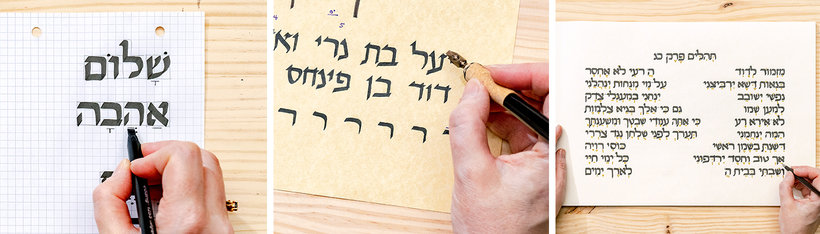 שָׁלוֹם
אַהֲבָה
יעל בת נרי
דוד בן פינחס
ר ר ר ר ר ר
תהלים פרק כג
מזמור לדוד ה רעי לא אחסר
בנאות דשא ירביצני על מי מנחות ינהלני
נפשי ישובב ינחני במעגלי צדק
למען שמו גם כי אלך בגיא צלמות
לא אירא רע כי אתה עמדי שבטך ומשענתך
המה ינחמני תערך לפני שלחן נגד צררי
דשנת בשמן ראשי כוסי רויה
אך טוב וחסד ירדפוני כל ימי חיי
ושבתי בבית ה לארך ימים